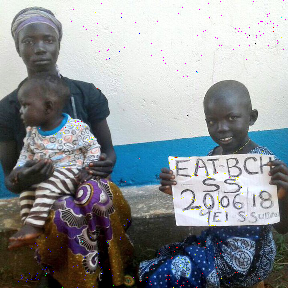 EAT-BCH
SS
20/06/18
YEI S SUDAN